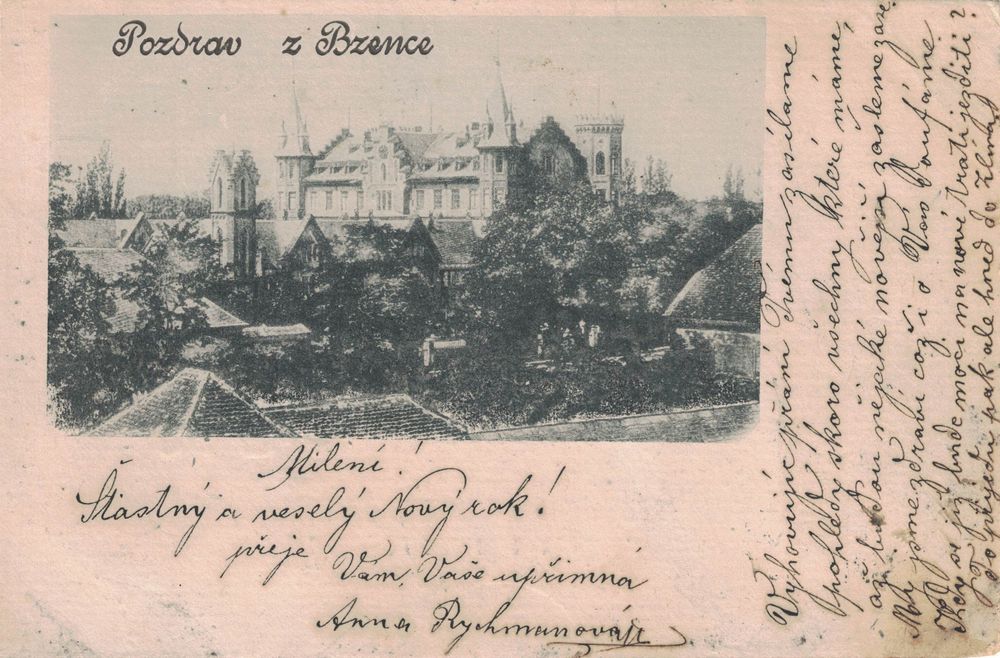 Pozdrav z Bzence
Milení!
Šťastný a veselý Nový rok!
přeje
Vám, Vaše upřímná
Anna Rychmanová
Vyhovujíc přání Tvémou zasílame
pohledy skoro všechny které máme,
až budou nějaké noveji zašleme zase
My jsme zdraví což i o Vás doufáme
Kdy se již bude moci na nové trati jezditi?
to přijedu pak ale hned do